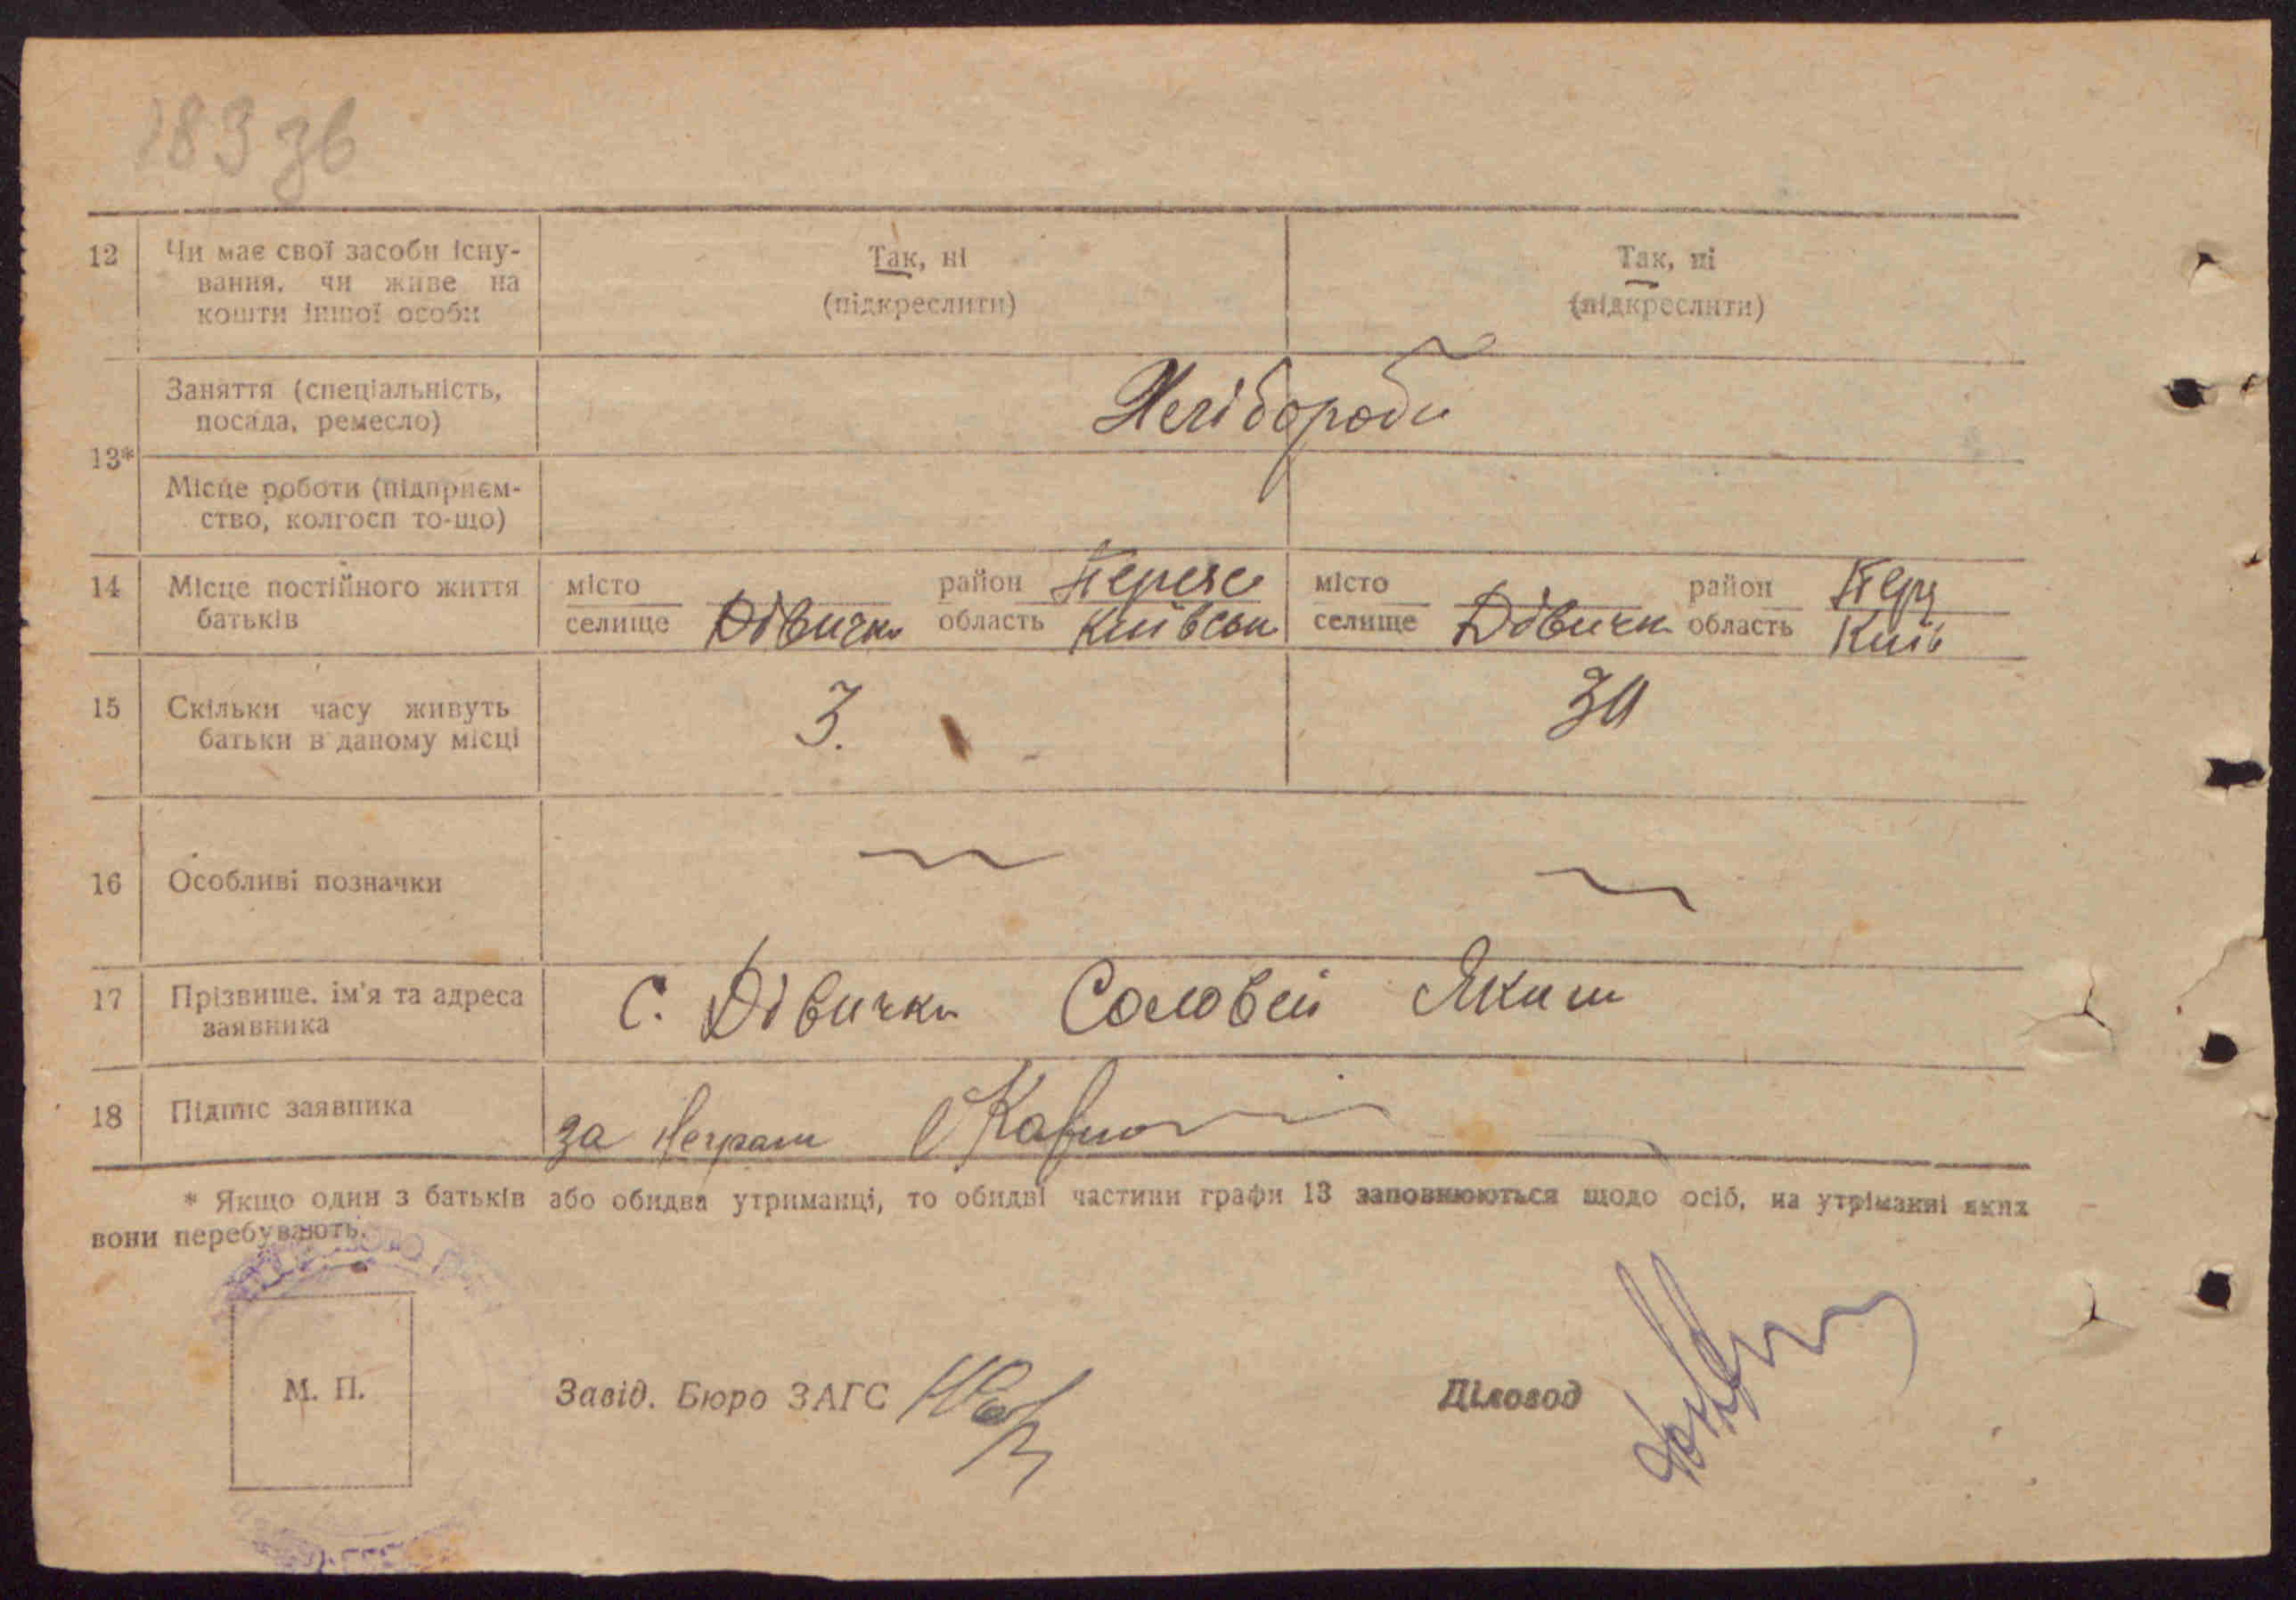 183 зв
12 Чи має свої засоби існу- Так, ні Так, ні
вання, чи живе на (підкреслити) (підкреслити)
кошти іншої особи
Заняття (спеціальність, Хлібороби
посада, ремесло)
13*
Місце роботи (підприєм-
ство, колгосп то-що)
14 Місце постійного життя місто район Переяс місто район Пер
батьків селище Дівички область Київськ селище Дівички область Київ
15 Скільки часу живуть 3. 30
батьки в даному місці
16 Особливі позначки
17 Прізвище, ім'я та адреса с. Дівички Соловей Яким
заявника
18 Підпис заявника за неграм
* Якщо один з батьків або обидва утриманці, то обидві частини графи 13 заповнюються щодо осіб, на утріманні яких
вони перебувають.
М. П.
Завід. Бюро ЗАГС Діловод